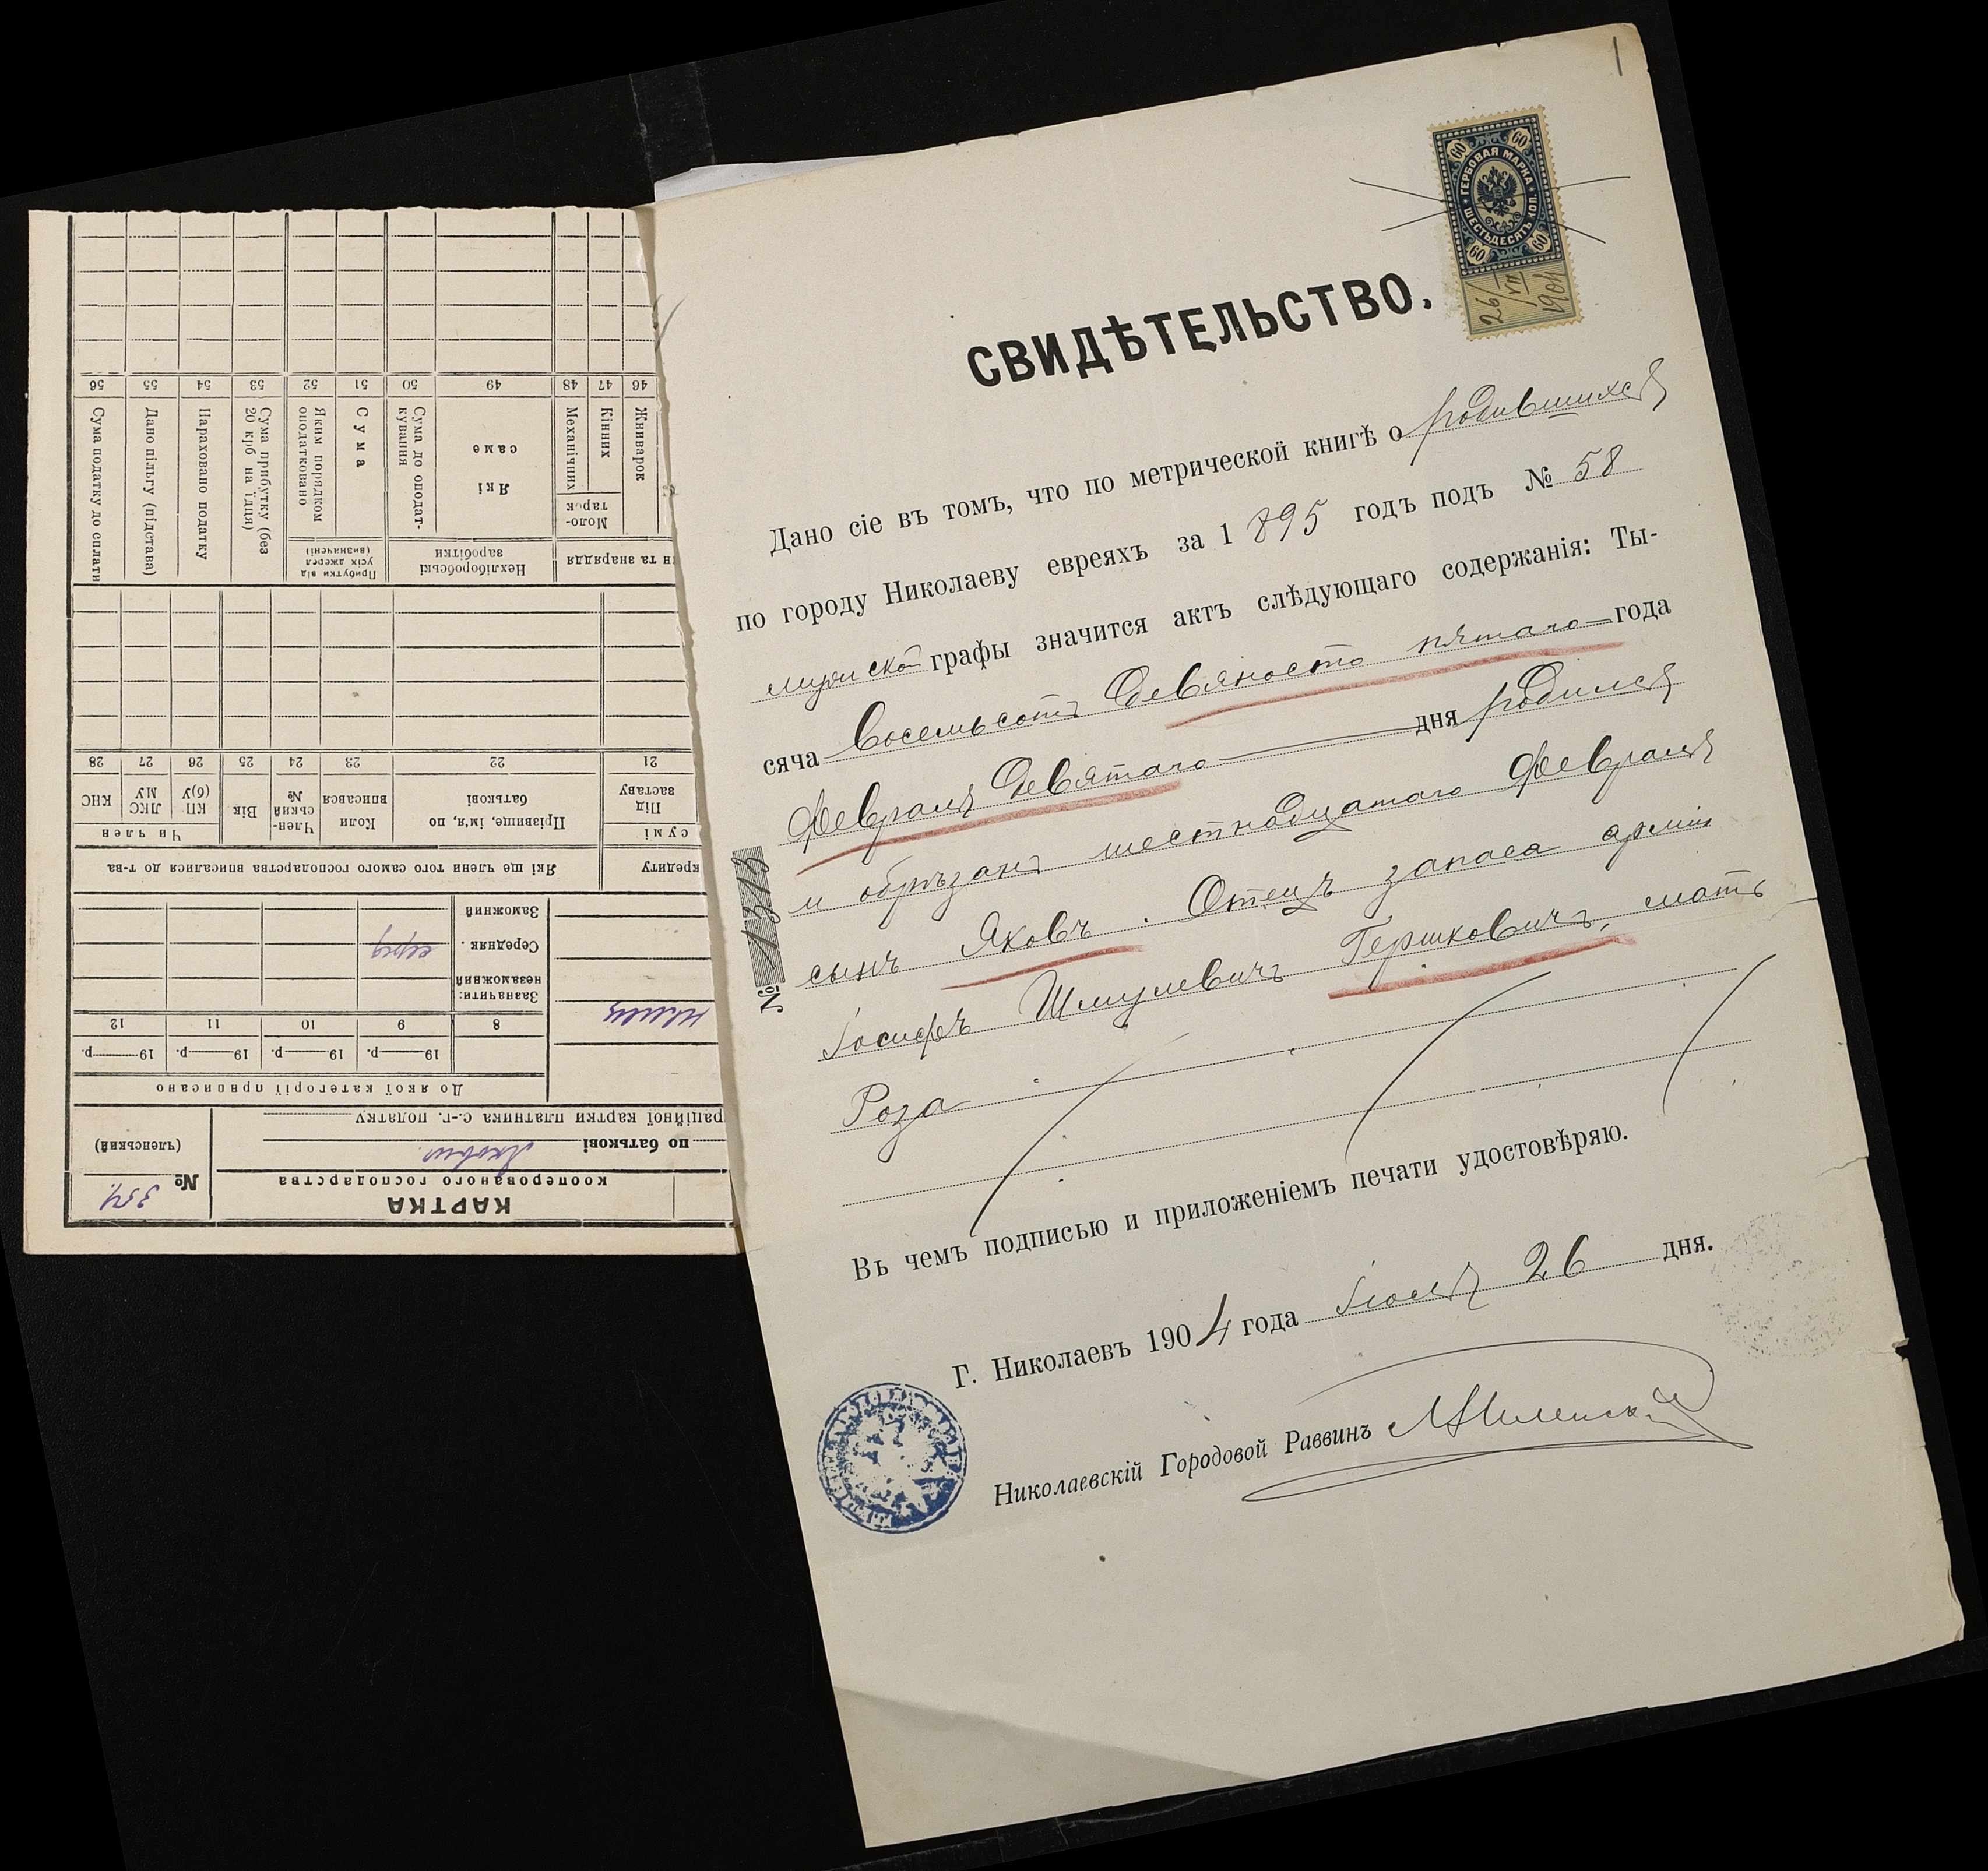 1
60 60
ГЕРБОВАЯ МАРКА
ШЕСТЬДЕСЯТЬ КОП.
60 60
26/VII 1904
СВИДѢТЕЛЬСТВО.
Дано сіе въ томъ, что по метрической книгѣ о родившихся
по городу Николаеву евреяхъ за 1895 годъ подъ № 58
мужской графы значится актъ слѣдующаго содержанія: Ты-
сяча восемьсотъ девяносто пятаго года
Февраля девятаго дня родился
и обрѣзанъ шестнадцатаго Февраля
сынъ Яковъ. Отецъ запаса арміи
Іосифъ Шмулевичъ Гершковичъ, мать
Роза
Въ чемъ подписью и приложеніемъ печати удостовѣряю.
Г. Николаевъ 1904 года Іюля 26 дня.
Николаевскій Городовой Раввинъ
№ 1313
КАРТКА
кооперованого господарства
№ 354
(членський)
по батькові
раційної картки платника с.-г. податку
До якої категорії приписано
19 р. 19 р. 19 р. 19 р.
8 9 10 11 12
Зазначити:
незаможний
Середняк серед
Заможний
кредиту Які ще члени того самого господарства вписалися до т-ва
сумі Чи член
Під заставу Прізвище, ім'я, по батькові Коли вписався Член-ський № Вік КП (б)У ЛКС МУ КНС
21 22 23 24 25 26 27 28
ни та знаряддя Нехліборобські заробітки Прибутки від усіх джерел (визначені)
Жниварок Моло-тарок Кінних Механічних Які саме Сума до оподат-кування Сума Яким порядком оподатковано Сума прибутку (без 20 крб на їдця) Нараховано податку Дано пільгу (підстава) Сума податку до сплати
46 47 48 49 50 51 52 53 54 55 56